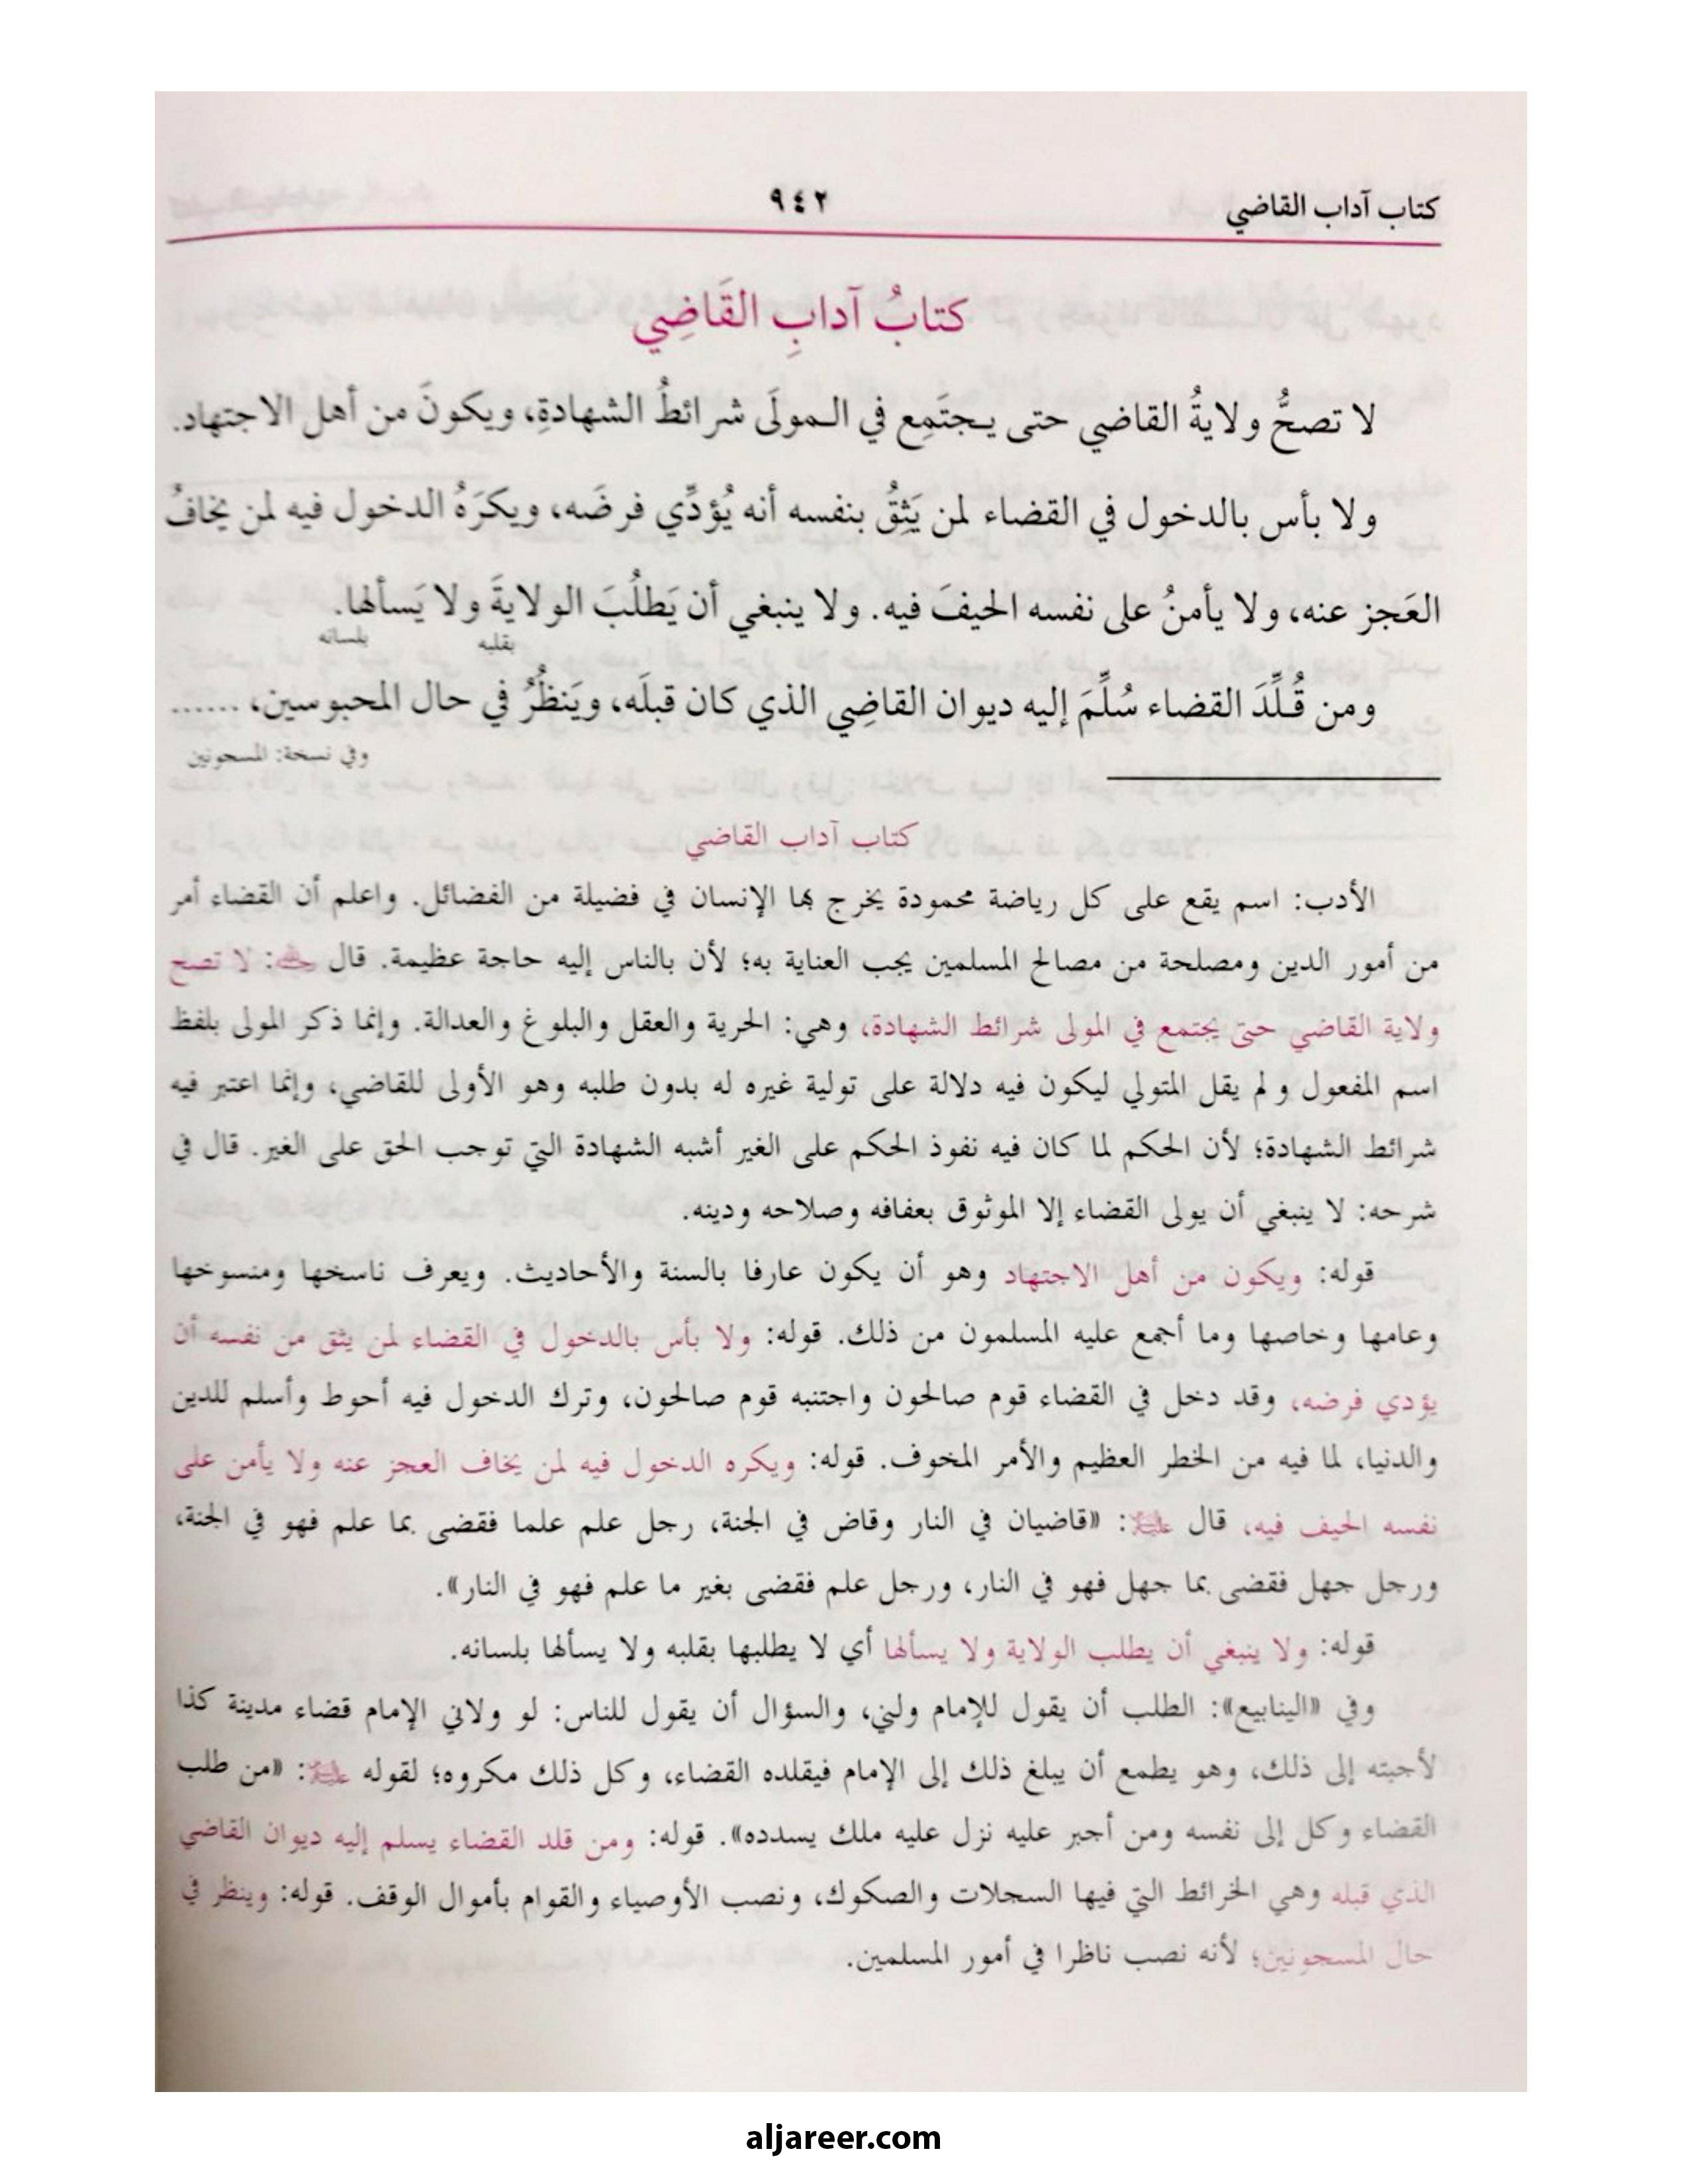 كتاب آداب القاضي
٩٤٢
كتابُ آدابِ القَاضِي
لا تصحُّ ولايةُ القاضي حتى يـجتَمِع في الـمولَى شرائطُ الشهادةِ، ويكونَ من أهل الاجتهاد.
ولا بأس بالدخول في القضاء لمن يَثِقُ بنفسه أنه يُؤدِّي فرضَه، ويكرَهُ الدخول فيه لمن يخافُ
العَجز عنه، ولا يأمنُ على نفسه الحيفَ فيه. ولا ينبغي أن يَطلُبَ الولايةَ ولا يَسألها.
بقلبه
بلسانه
ومن قُـلِّدَ القضاء سُلِّمَ إليه ديوان القاضِي الذي كان قبلَه، ويَنظُرُ في حال المحبوسين، ......
وفي نسخة: المسجونين
كتاب آداب القاضي
الأدب: اسم يقع على كل رياضة محمودة يخرج بها الإنسان في فضيلة من الفضائل. واعلم أن القضاء أمر
من أمور الدين ومصلحة من مصالح المسلمين يجب العناية به؛ لأن بالناس إليه حاجة عظيمة. قال : لا تصح
ولاية القاضي حتى يجتمع في المولى شرائط الشهادة، وهي: الحرية والعقل والبلوغ والعدالة. وإنما ذكر المولى بلفظ
اسم المفعول ولم يقل المتولي ليكون فيه دلالة على تولية غيره له بدون طلبه وهو الأولى للقاضي، وإنما اعتبر فيه
شرائط الشهادة؛ لأن الحكم لما كان فيه نفوذ الحكم على الغير أشبه الشهادة التي توجب الحق على الغير. قال في
شرحه: لا ينبغي أن يولى القضاء إلا الموثوق بعفافه وصلاحه ودينه.
قوله: ويكون من أهل الاجتهاد وهو أن يكون عارفا بالسنة والأحاديث. ويعرف ناسخها ومنسوخها
وعامها وخاصها وما أجمع عليه المسلمون من ذلك. قوله: ولا بأس بالدخول في القضاء لمن يثق من نفسه أن
يؤدي فرضه، وقد دخل في القضاء قوم صالحون واجتنبه قوم صالحون، وترك الدخول فيه أحوط وأسلم للدين
والدنيا، لما فيه من الخطر العظيم والأمر المخوف. قوله: ويكره الدخول فيه لمن يخاف العجز عنه ولا يأمن على
نفسه الحيف فيه، قال : «قاضيان في النار وقاض في الجنة، رجل علم علما فقضى بما علم فهو في الجنة،
ورجل جهل فقضى بما جهل فهو في النار، ورجل علم فقضى بغير ما علم فهو في النار».
قوله: ولا ينبغي أن يطلب الولاية ولا يسألها أي لا يطلبها بقلبه ولا يسألها بلسانه.
وفي «الينابيع»: الطلب أن يقول للإمام ولني، والسؤال أن يقول للناس: لو ولاني الإمام قضاء مدينة كذا
لأجبته إلى ذلك، وهو يطمع أن يبلغ ذلك إلى الإمام فيقلده القضاء، وكل ذلك مكروه؛ لقوله : «من طلب
القضاء وكل إلى نفسه ومن أجبر عليه نزل عليه ملك يسدده». قوله: ومن قلد القضاء يسلم إليه ديوان القاضي
الذي قبله وهي الخرائط التي فيها السجلات والصكوك، ونصب الأوصياء والقوام بأموال الوقف. قوله: وينظر في
حال المسجونين؛ لأنه نصب ناظرا في أمور المسلمين.
aljareer.com